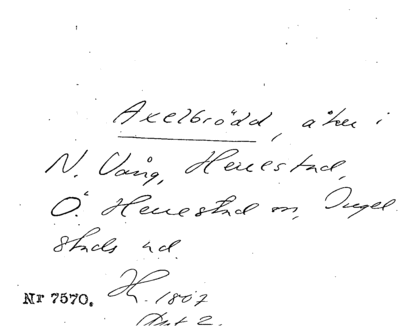 Axelbrödd, åker i
N. Vång, Herrestad,
Ö. Herrestad sn, Ingel
stads hd.
Nr 7570. H. 1807
Akt 2.